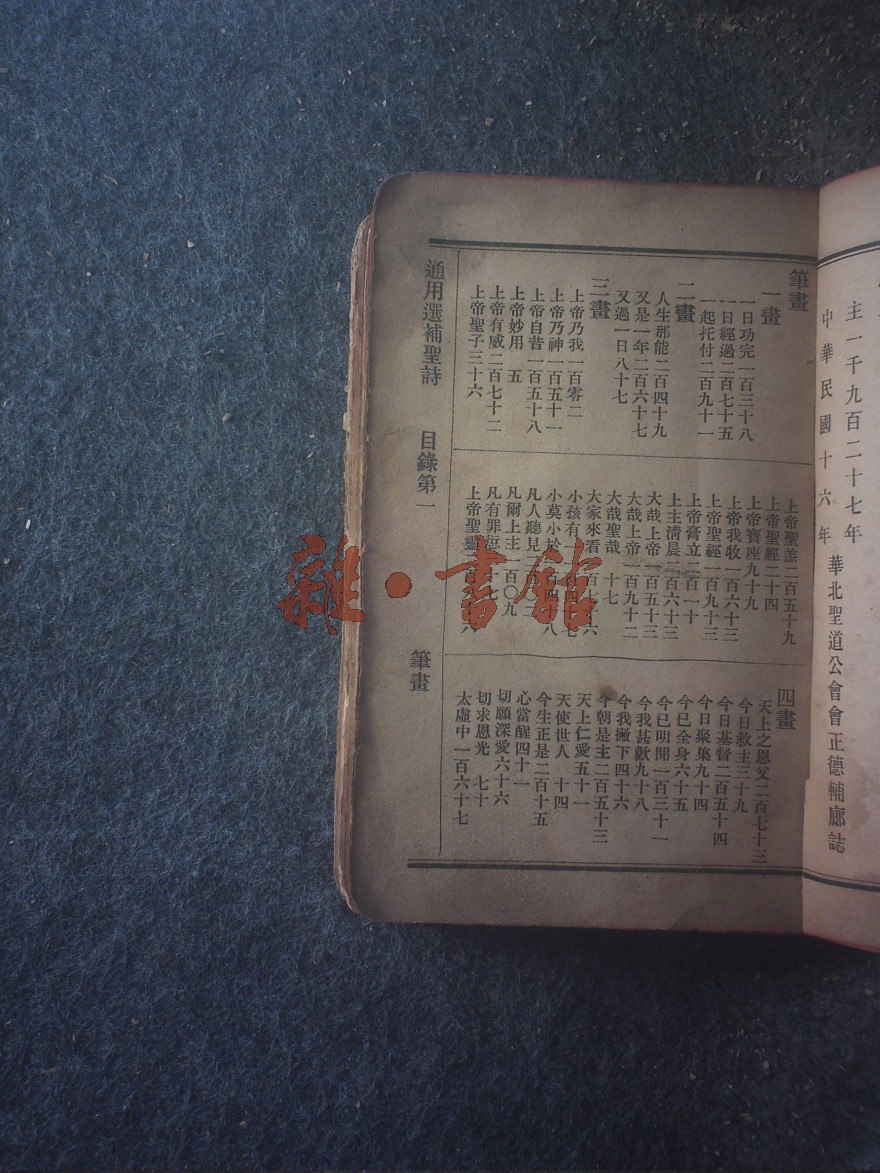 主一千九百二十七年
中華民國十六年 華北聖道公會會正德輔廊誌
筆畫
一畫
一日功完一百三十八
一日經過二百七十五
一起托付二百九十一
二畫
人生那能二百四十九
又是一年二百六十七
又過一日八十七
三畫
上帝乃我一百零二
上帝乃神一百五十一
上帝自昔一百五十八
上帝妙用 五
上帝有威二百七十二
上帝聖子三十六
上帝聖羔二百五十九
上帝聖經二十四
上帝寶座九十九
上帝我牧一百六十三
上帝聖經一百九十三
上帝膏立二百一十
上主清晨二百六十三
大哉上帝一百五十三
大哉上帝一百九十二
大哉聖哉 十七
大家來看
小孩有
小莫小於
凡人聽見
凡爾上主一百〇九
凡有罪愆
上帝聖靈
四畫
天上之恩父二百七十三
今日救主三十九
今日基督二百五十四
今日聚集九十四
今已全身六十五
今已明聞一百三十一
今我甚歡九十八
今我撇下四十六
今朝是主二百五十三
天上仁愛五十一
天使世人 十四
今生正是二百十五
心當醒四十一
切願深愛六十六
切求恩光 七十
太虛中一百六十七
通用選補聖詩 目錄第一 筆畫
雜·書館